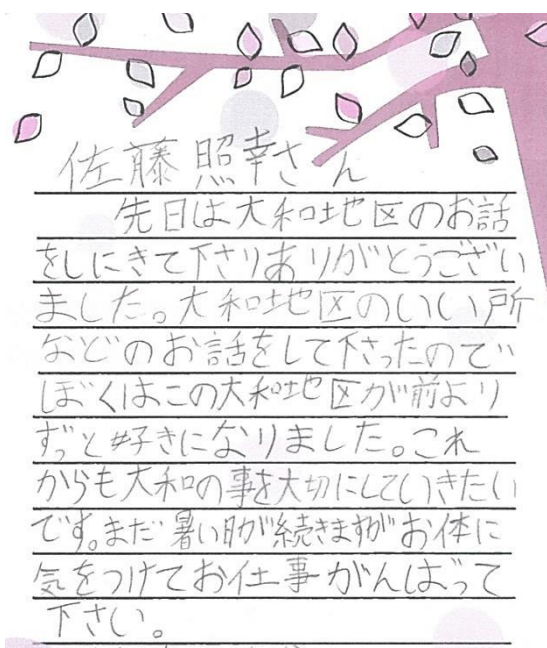 佐藤照幸さん
先日は大和地区のお話
をしにきて下さりありがとうござい
ました。大和地区のいい所
などのお話をして下さったので
ぼくはこの大和地区が前より
ずっと好きになりました。これ
からも大和の事を大切にしていきたい
です。まだ暑い日が続きますがお体に
気をつけてお仕事がんばって
下さい。